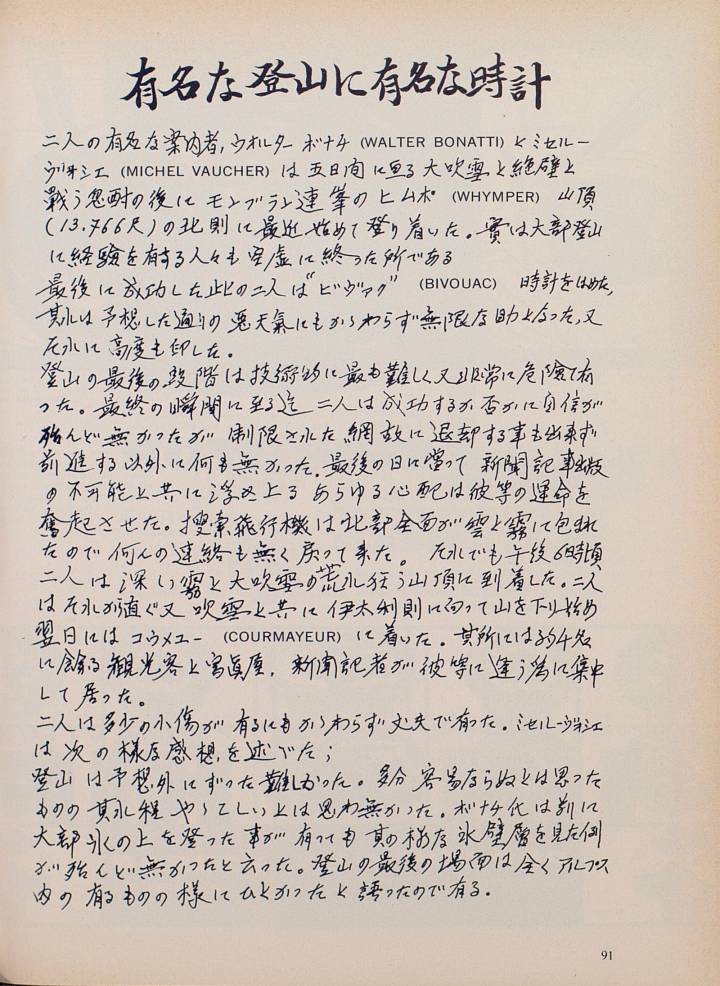 有名な登山に有名な時計
二人の有名な案内者,ウオルター ボナチ (WALTER BONATTI) と ミセルー
ヴォシエ (MICHEL VAUCHER) は 五日間に亘る 大吹雪と絶壁と
戦う忍耐の後に モンブラン連峯の ヒムポ (WHYMPER) 山頂
(13.766尺)の北則に最近始めて登り着いた。實は大部登山
に経験を有する人々も空虚に終った所である
最後に成功した此の二人は“ビヴァク” (BIVOUAC) 時計をはめた,
其れは予想した通りの悪天氣にもかゝわらず無限な助となった,又
それに高度も印した。
登山の最後の段階は技術的に最も難しく又非常に危険で有
った。最終の瞬間に至る迄 二人は成功するか否かに自信が
殆んど無かったが 制限された網故に退却する事も出来ず
前進する以外に何も無かった。最後の日に當って 新聞記事出版
の不可能と共に浮み上る あらゆる心配は彼等の運命を
奮起させた。捜索飛行機は北部全面が雲と霧に包まれ
たので何んの連絡も無く戻って来た。 それでも午後6時頃
二人は深い霧と大吹雪の荒れ狂う山頂に到着した。二人
はそれから直ぐ又吹雪と共に伊太利則に向って山を下り始め
翌日には コウメユー (COURMAYEUR) に着いた。其所には約千名
に余る観光客と写真屋,新聞記者が彼等に逢う為に集中
して居った。
二人は多少の小傷が有るにもかゝわらず丈夫で有った。ミセルーヴォシエ
は次の様な感想を述べた;
登山は予想外にずっと難しかった。多分 容易ならぬとは思った
ものの其れ程やゝこしいとは思わ無かった。ボナチ氏は前に
大部氷の上を登った事が有っても其の様な氷壁層を見た例
が殆んど無かったと云った。登山の最後の場面は全くアルプス
内の有るものの様にひどかったと語ったので有る.
91